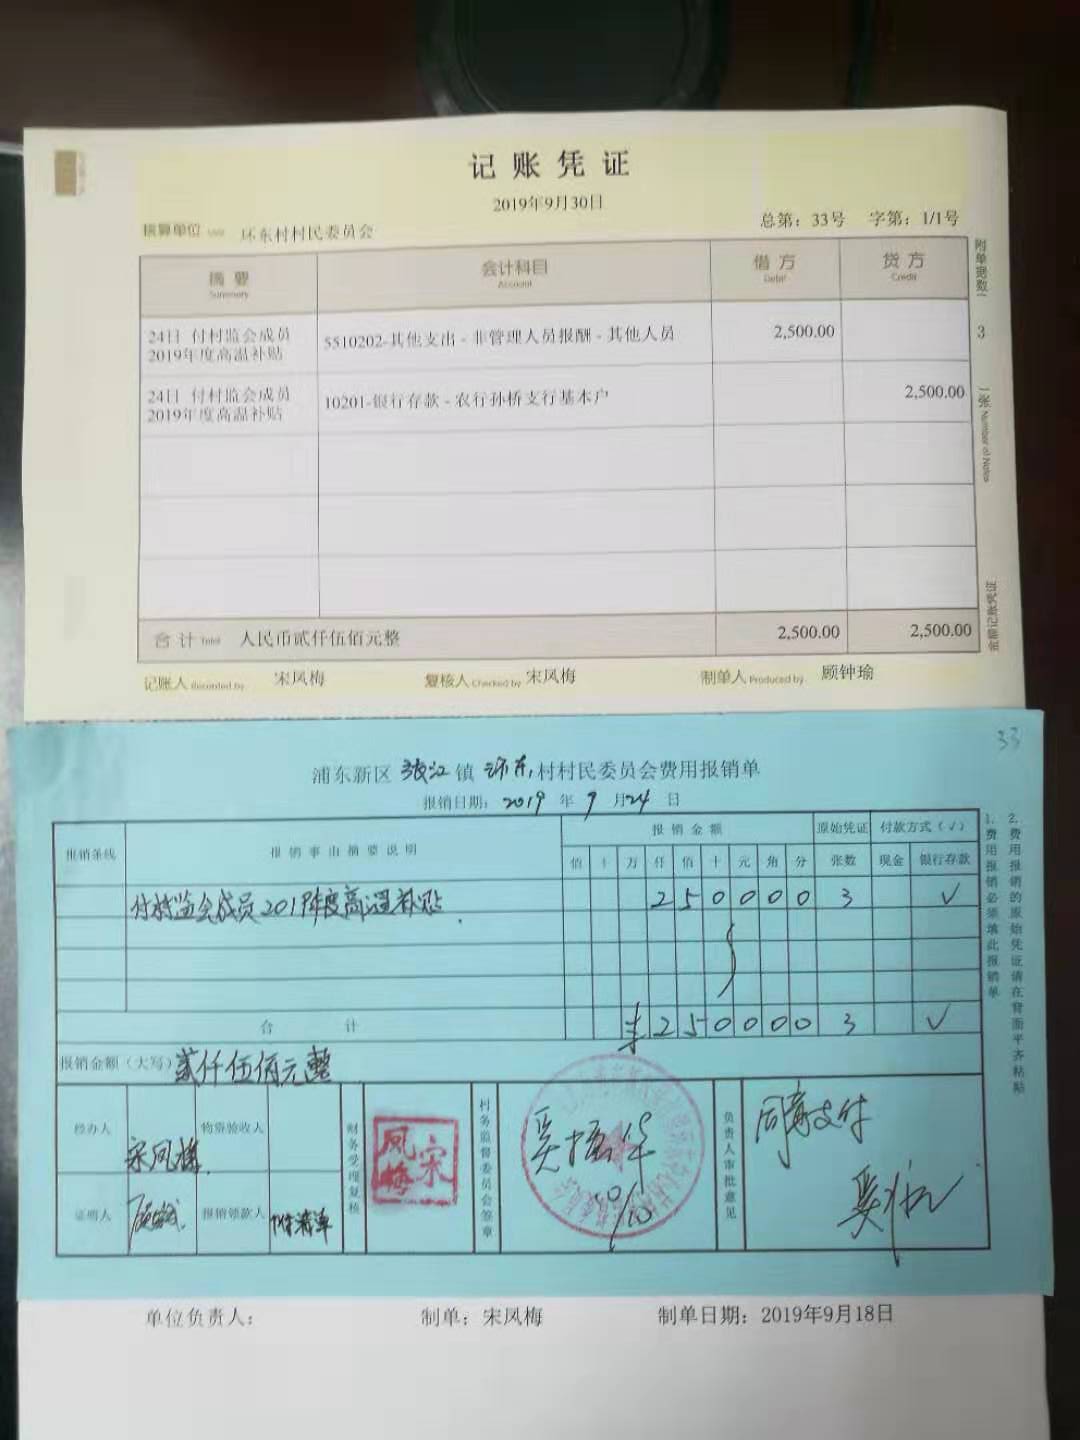 记账凭证
2019年9月30日
核算单位 Unit 环东村村民委员会 总第：33号 字第：1/1号
摘要 会计科目 借方 贷方
Summary Account Debit Credit
24日 付村监会成员2019年度高温补贴 5510202-其他支出-非管理人员报酬-其他人员 2,500.00
24日 付村监会成员2019年度高温补贴 10201-银行存款-农行孙桥支行基本户 2,500.00
合计 Total 人民币贰仟伍佰元整 2,500.00 2,500.00
记账人 Recorded by 宋凤梅 复核人 Checked by 宋凤梅 制单人 Produced by 顾钟瑜
附单据数 3 张 Number of Notes
金额记账凭证
33
浦东新区 张江 镇 环东 村村民委员会费用报销单
报销日期：2019 年 9 月 24 日
报销条线 报销事由摘要说明 报销金额 原始凭证 付款方式（√）
佰 十 万 仟 佰 十 元 角 分 张数 现金 银行存款
付村监会成员2019年度高温补贴 250000 3 √
合计 ¥250000 3 √
报销金额（大写）贰仟伍佰元整
经办人 宋凤梅 物资验收人
证明人 报销领款人 附清单
财务受理复核 宋凤梅
村务监督委员会签章 10/10
负责人审批意见 同意支付
1.费用报销必须填此报销单
2.费用报销的原始凭证请在背面平齐粘贴
单位负责人： 制单：宋凤梅 制单日期：2019年9月18日